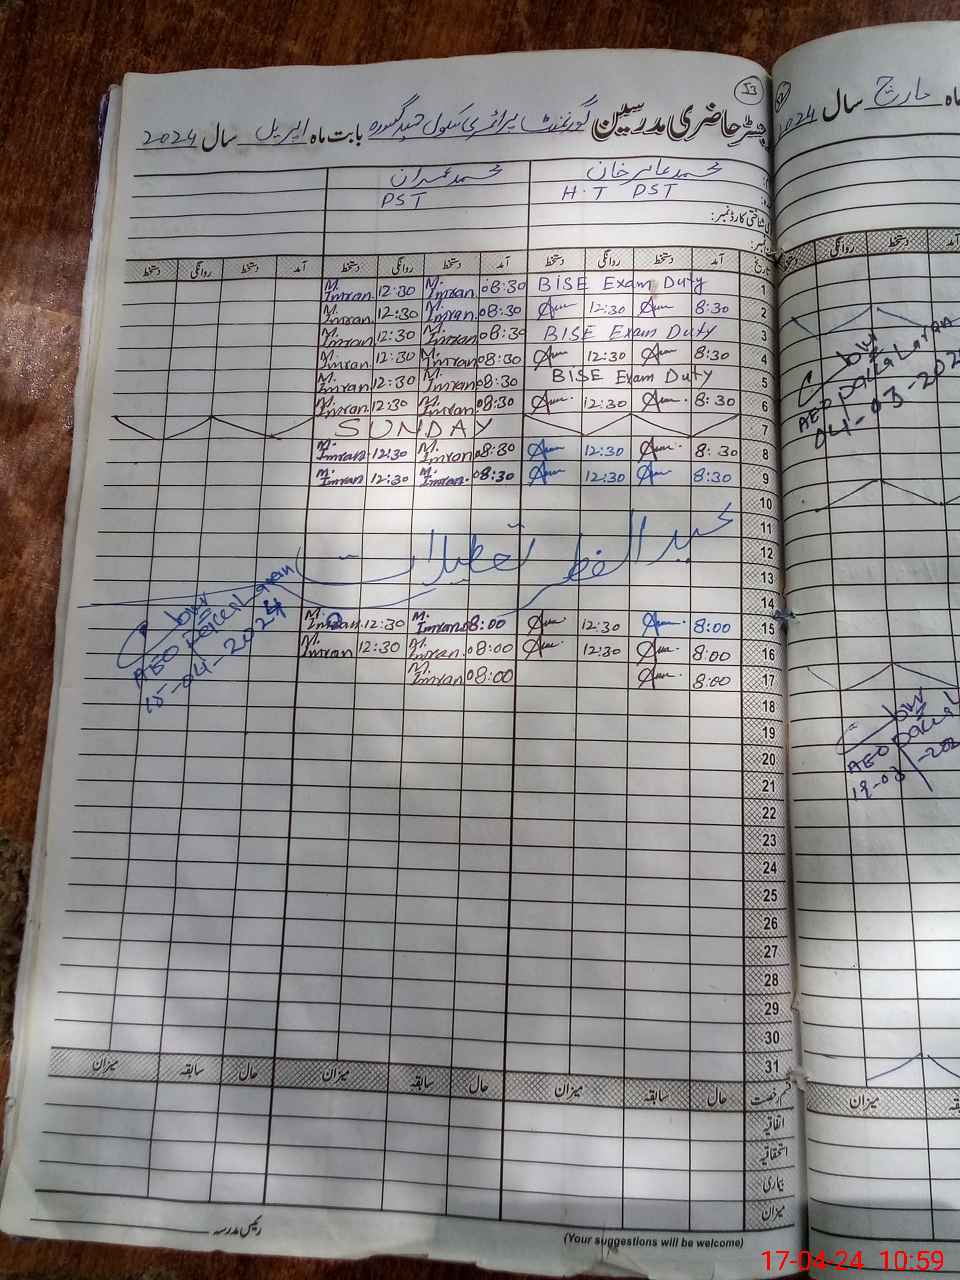 53
رجسٹر حاضری مدرسین گورنمنٹ پرائمری سکول بابت ماہ اپریل سال 2024
محمد عامر خان محمد عمران
H.T PST PST
شناختی کارڈ نمبر:
تاریخ آمد دستخط روانگی دستخط آمد دستخط روانگی دستخط آمد دستخط روانگی دستخط
1 BISE Exam Duty 08:30 M. Imran 12:30 M. Imran
2 8:30 12:30 08:30 M. Imran 12:30 M. Imran
3 BISE Exam Duty 08:30 M. Imran 12:30 M. Imran
4 8:30 12:30 08:30 M. Imran 12:30 M. Imran
5 BISE Exam Duty 08:30 M. Imran 12:30 M. Imran
6 8:30 12:30 08:30 M. Imran 12:30 M. Imran
7 SUNDAY
8 8:30 12:30 08:30 M. Imran 12:30 M. Imran
9 8:30 12:30 08:30 M. Imran 12:30 M. Imran
10
11
عید الفطر تعطیلات
12
13
14
15 8:00 12:30 08:00 M. Imran 12:30 M. Imran
16 8:00 12:30 08:00 M. Imran 12:30 M. Imran
17 8:00 08:00 M. Imran
AEO
15-04-2024
18
19
20
21
22
23
24
25
26
27
28
29
30
31
قسم رخصت حال سابقہ میزان حال سابقہ میزان حال سابقہ میزان
اتفاقیہ
استحقاقیہ
بیماری
میزان
رئیس مدرسہ
(Your suggestions will be welcome)
52
ماہ مارچ سال 2024
آمد دستخط روانگی دستخط
AEO
04-03-202
AEO
19-03-202
میزان
17-04-24 10:59